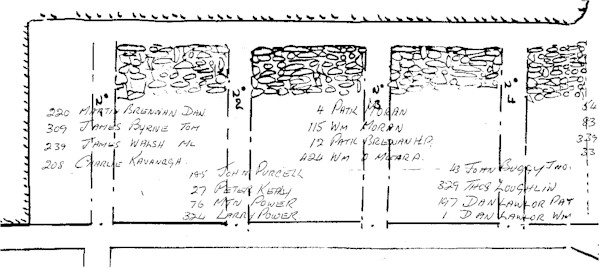 No 1
No 2
No 3
No 4
220 MARTIN BRENNAN DAN
309 JAMES BYRNE TOM
239 JAMES WALSH ML
208 CHARLIE KAVANAGH
195 JOHN PURCELL
27 PETER KEALY
76 MTN POWER
324 LARRY POWER
4 PATK MORAN
115 WM MORAN
12 PATK BRENNAN H.P.
424 WM O MEARA
43 JOHN BUGGY JNO.
329 THOS LOUGHLIN
197 DAN LAWLOR PAT
1 DAN LAWLOR WM
54
83
339
33